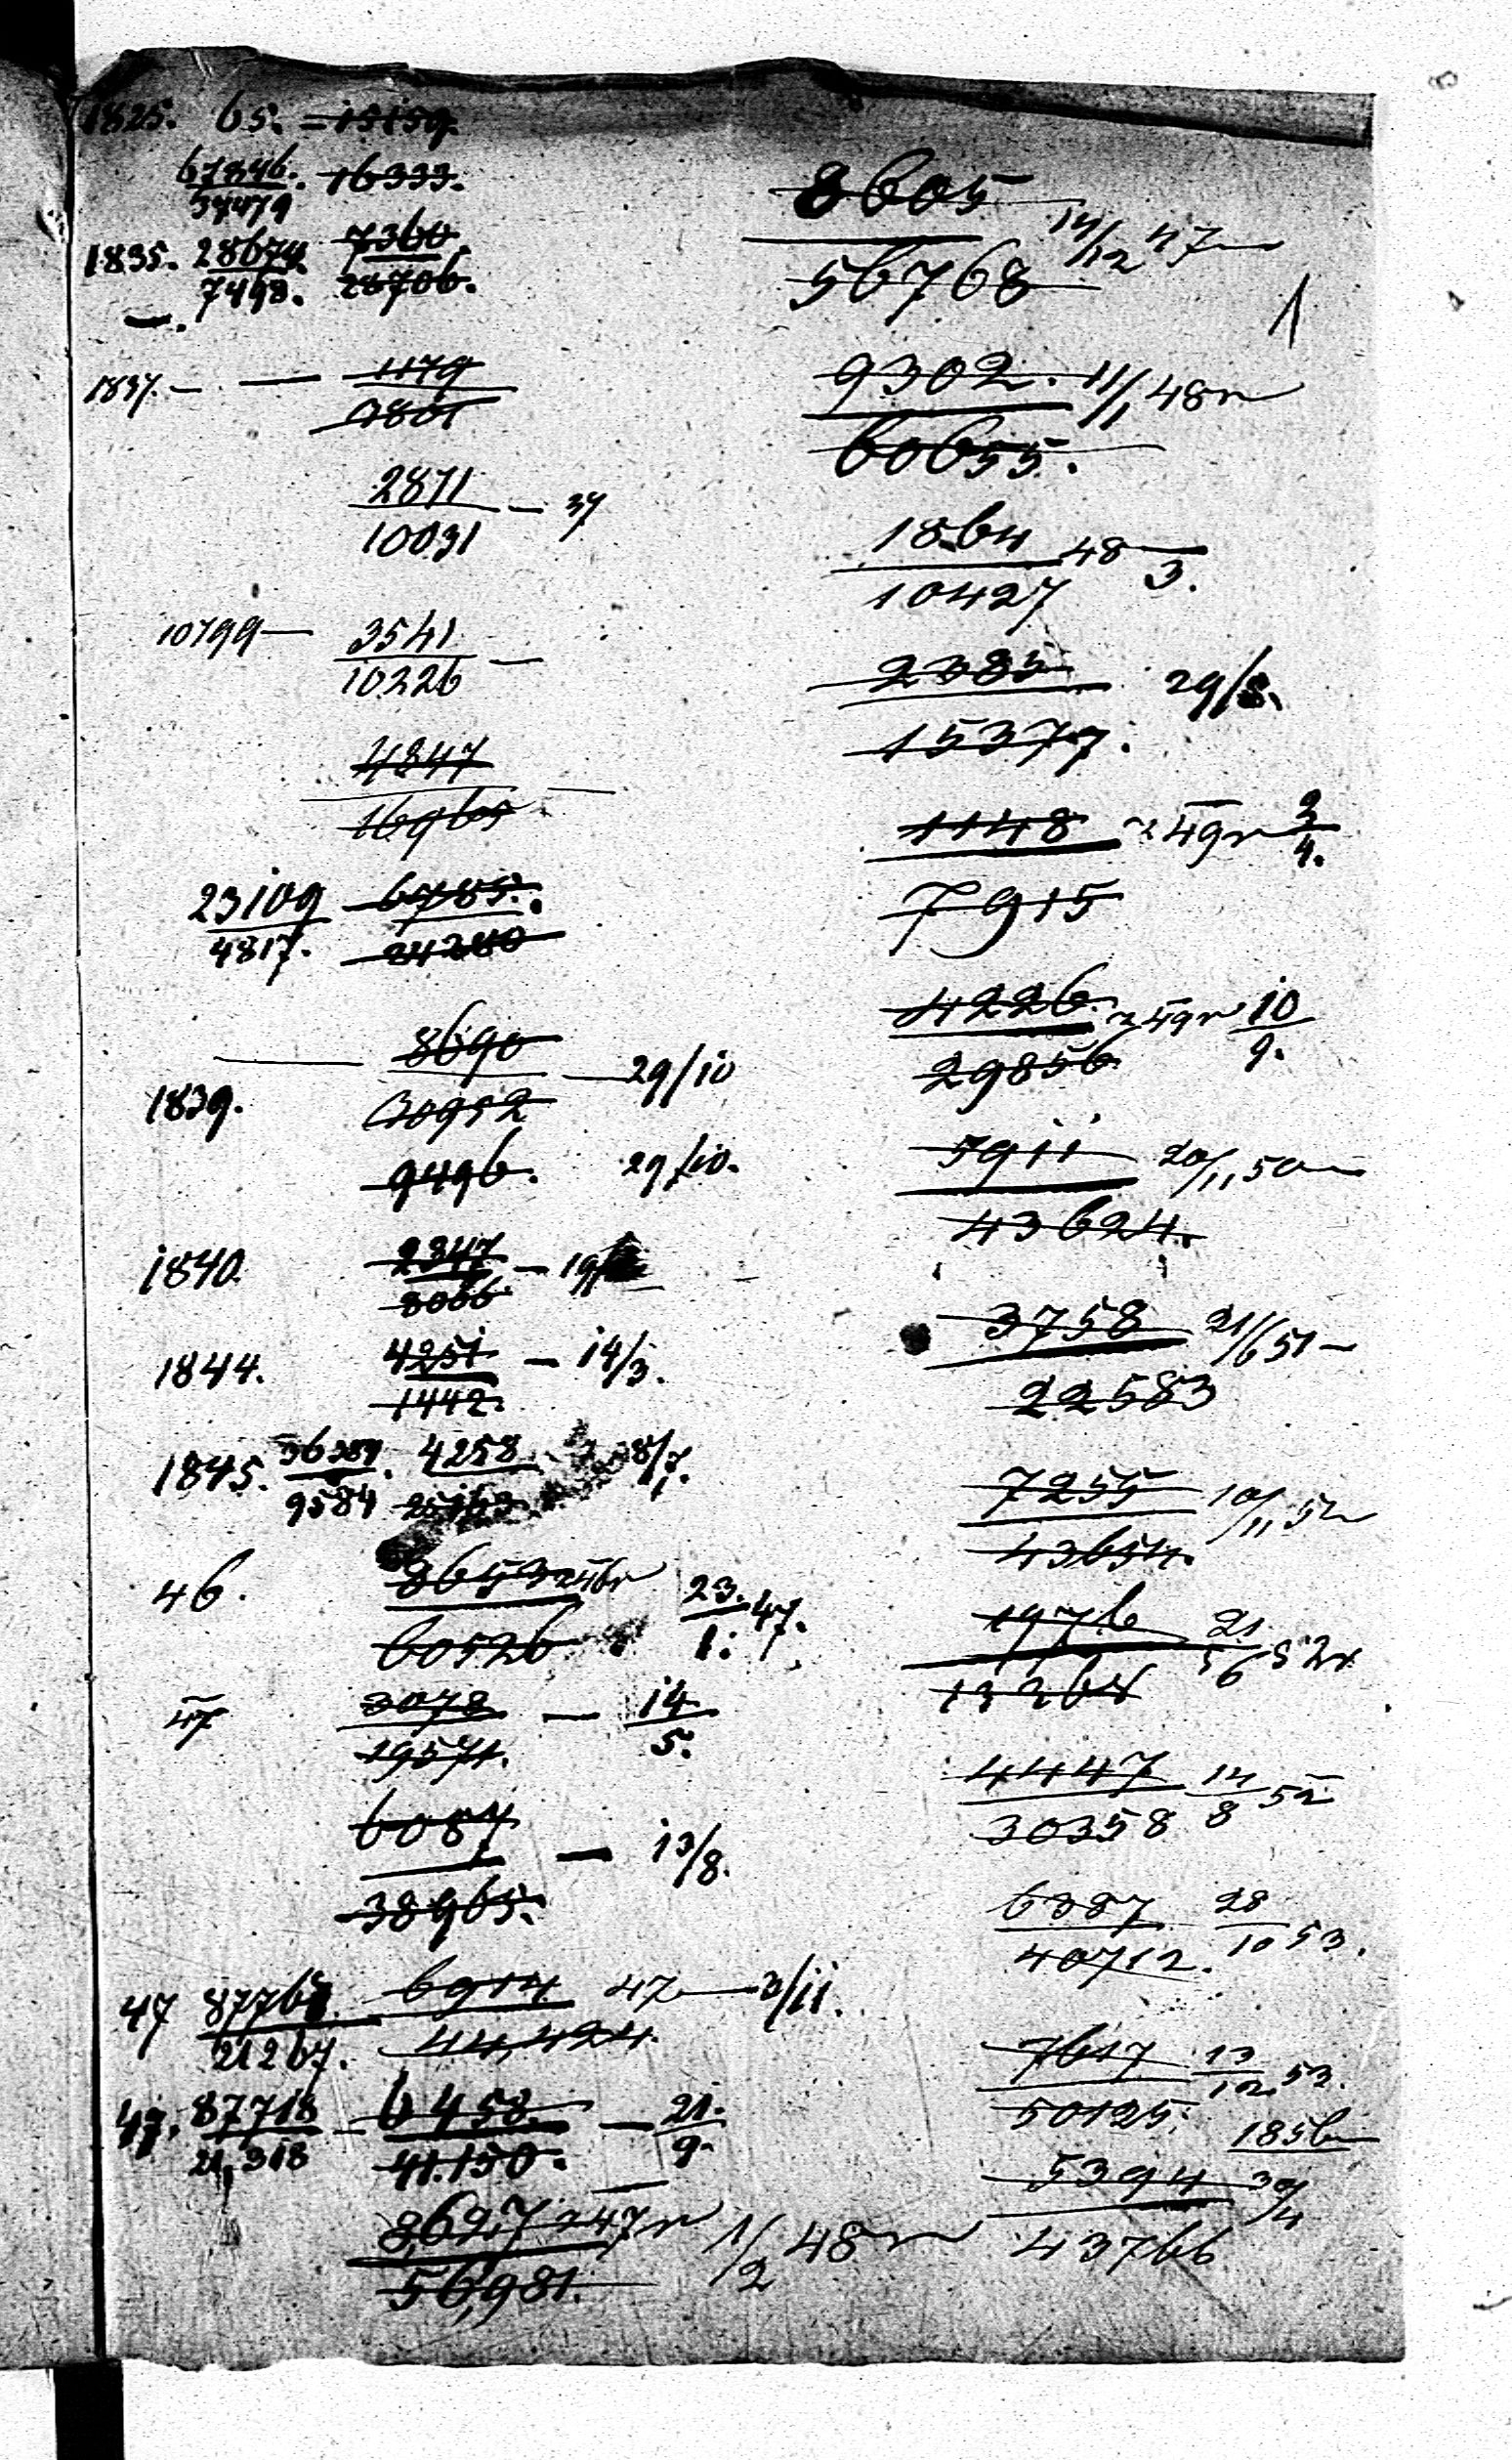 1825. 65. = 15159.
67846. 16333.
57479
1835. 28674. 7360.
7498. 28706.
1837. — — 1179
9801
2871 — 37
10031
10799 — 3541 —
10226
4847
16965
23109 6785.
4817. 24280
8690 — 29/10
1839. 30952
9496. 29/10.
1840. 2347 — 19/
8066
1844. 4251 — 14/3.
1442.
1845. 36389. 4258 8/7.
9584
46. 8653 46r 23. 47.
60526 1.
47 3078 — 14
19571. 5.
6087 — 13/8.
38965.
47 6914 47 — 3/11.
21267. 44,424.
47. 87718 — 6458. — 21.
21,318 41.150. 9.
8,627 47r 1/2 48
56,981.
8605 14/12 47
56768
1
9302. 11/1 48
60655.
1864 48 —
10427 3.
2385 29/8.
15377.
1148 49 3
7915 4.
4226. 49 10
29856 9.
5911 20/11 50
43624.
3758 21/6 51 —
22583
7255 10/11 52
43654.
1976 21 52
13264 6
4447 14 52
30358 8
6387 28 53.
40712. 10
7617 13 53.
50125. 12
1856
5394 30/4
43766